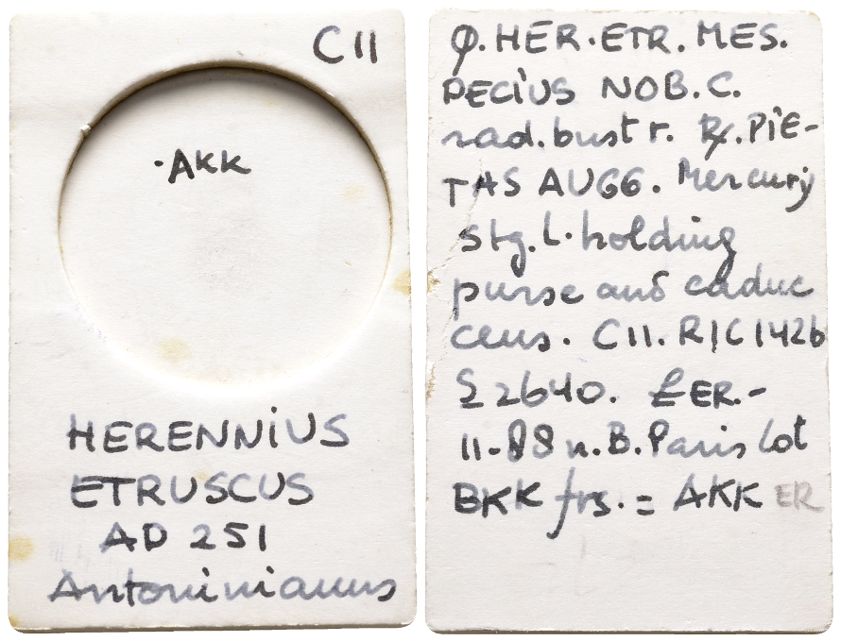 C11
·AKK
HERENNiUS
ETRUSCUS
AD 251
Antoninianus
Q. HER. ETR. MES.
DECiUS NOB. C.
rad. bust r. R. PiE-
TAS AUGG. Mercury
stg. L. holding
purse and caduc
ceus. C11. RIC 142b
S 2640. ER.-
11-88 n. B. Paris lot
BKK frs. = AKK ER